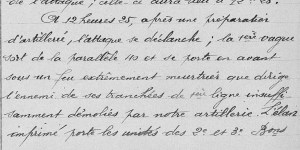 de l'attaque; celle-ci aura lieu à
A 12 heures 25, après une préparation
d'artillerie, l'attaque se déclanche; la 1ère vague
sort de la parallèle 110 et se porte en avant
sous un feu extrêmement meurtrier que dirige
l'ennemi de ses tranchées de 1ère ligne insuffi-
samment démolies par notre artillerie. L'élan
imprimé porte les unités des 2e et 3e Bons